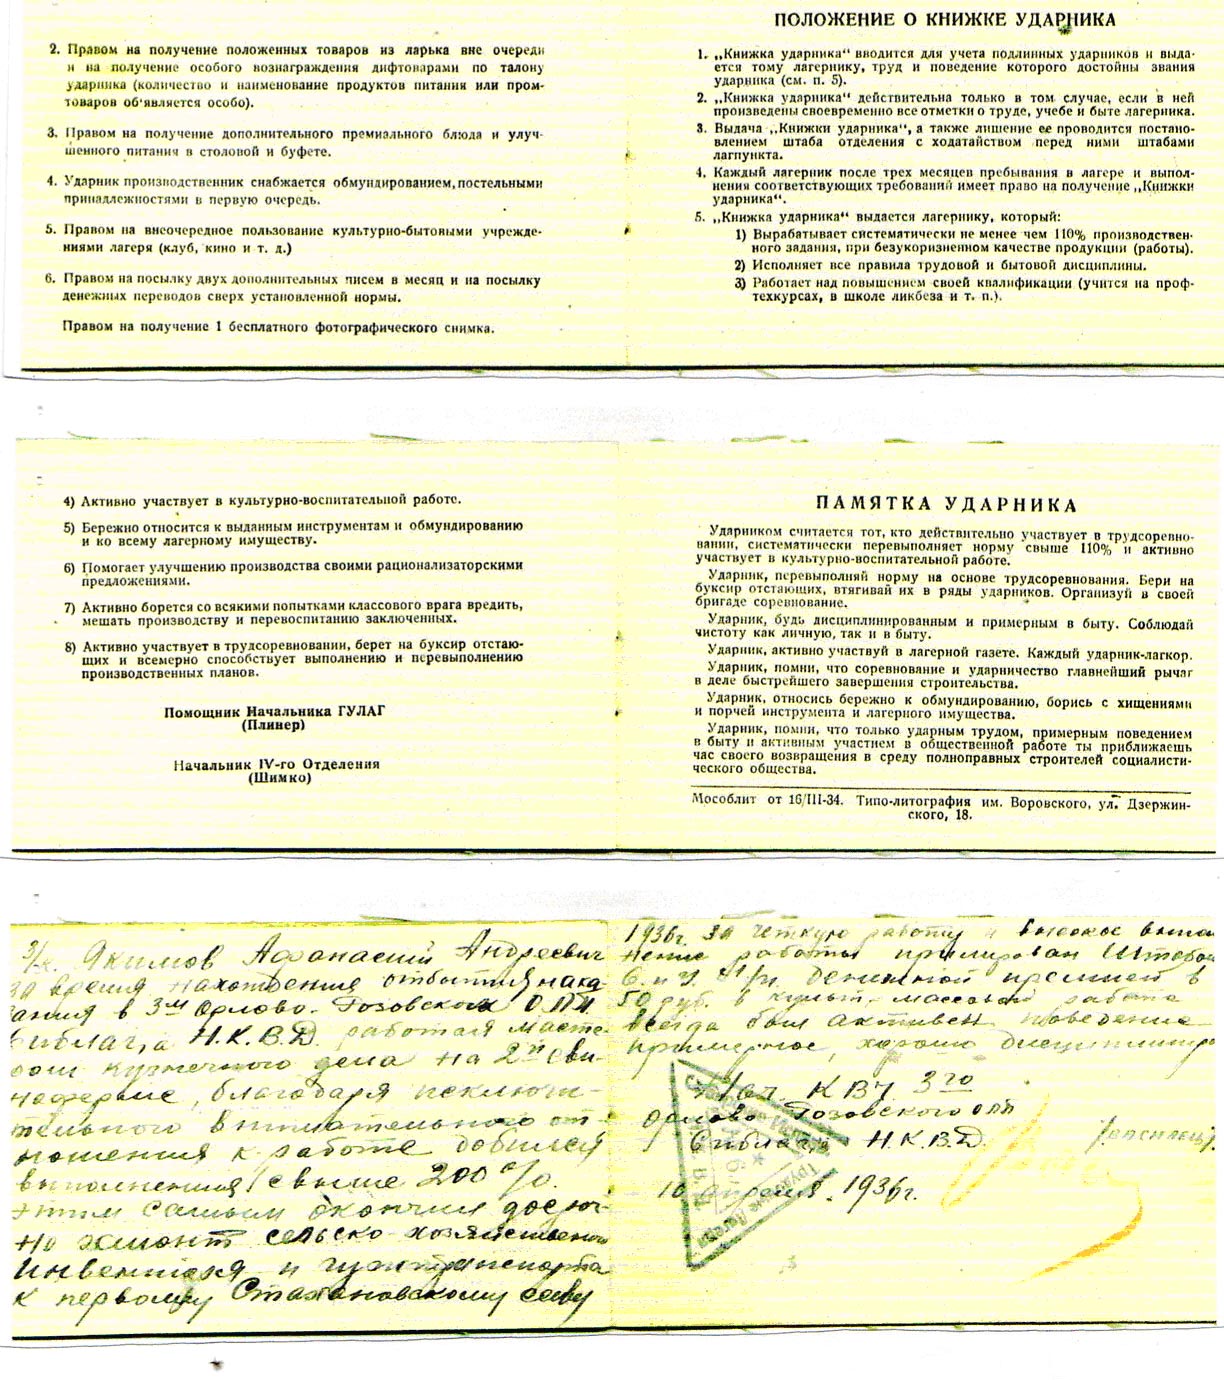 2. Правом на получение положенных товаров из ларька вне очереди
и на получение особого вознаграждения дифтоварами по талону
ударника (количество и наименование продуктов питания или пром-
товаров об'является особо).
3. Правом на получение дополнительного премиального блюда и улуч-
шенного питания в столовой и буфете.
4. Ударник производственник снабжается обмундированием, постельными
принадлежностями в первую очередь.
5. Правом на внеочередное пользование культурно-бытовыми учрежде-
ниями лагеря (клуб, кино и т. д.)
6. Правом на посылку двух дополнительных писем в месяц и на посылку
денежных переводов сверх установленной нормы.
Правом на получение 1 бесплатного фотографического снимка.
ПОЛОЖЕНИЕ О КНИЖКЕ УДАРНИКА
1. „Книжка ударника“ вводится для учета подлинных ударников и выда-
ется тому лагернику, труд и поведение которого достойны звания
ударника (см. п. 5).
2. „Книжка ударника“ действительна только в том случае, если в ней
произведены своевременно все отметки о труде, учебе и быте лагерника.
3. Выдача „Книжки ударника“, а также лишение ее проводится постано-
влением штаба отделения с ходатайством перед ними штабами
лагпункта.
4. Каждый лагерник после трех месяцев пребывания в лагере и выпол-
нения соответствующих требований имеет право на получение „Книжки
ударника“.
5. „Книжка ударника“ выдается лагернику, который:
1) Вырабатывает систематически не менее чем 110% производствен-
ного задания, при безукоризненном качестве продукции (работы).
2) Исполняет все правила трудовой и бытовой дисциплины.
3) Работает над повышением своей квалификации (учится на проф-
техкурсах, в школе ликбеза и т. п.).
4) Активно участвует в культурно-воспитательной работе.
5) Бережно относится к выданным инструментам и обмундированию
и ко всему лагерному имуществу.
6) Помогает улучшению производства своими рационализаторскими
предложениями.
7) Активно борется со всякими попытками классового врага вредить,
мешать производству и перевоспитанию заключенных.
8) Активно участвует в трудсоревновании, берет на буксир отстаю-
щих и всемерно способствует выполнению и перевыполнению
производственных планов.
Помощник Начальника ГУЛАГ
(Плинер)
Начальник IV-го Отделения
(Шимко)
ПАМЯТКА УДАРНИКА
Ударником считается тот, кто действительно участвует в трудсоревно-
вании, систематически перевыполняет норму свыше 110% и активно
участвует в культурно-воспитательной работе.
Ударник, перевыполняй норму на основе трудсоревнования. Бери на
буксир отстающих, втягивай их в ряды ударников. Организуй в своей
бригаде соревнование.
Ударник, будь дисциплинированным и примерным в быту. Соблюдай
чистоту как личную, так и в быту.
Ударник, активно участвуй в лагерной газете. Каждый ударник-лагкор.
Ударник, помни, что соревнование и ударничество главнейший рычаг
в деле быстрейшего завершения строительства.
Ударник, относись бережно к обмундированию, борись с хищениями
и порчей инструмента и лагерного имущества.
Ударник, помни, что только ударным трудом, примерным поведением
в быту и активным участием в общественной работе ты приближаешь
час своего возвращения в среду полноправных строителей социалисти-
ческого общества.
Мособлит от 16/III-34. Типо-литография им. Воровского, ул. Дзержин-
ского, 18.
З/к. Якимов Афанасий Андреевич
за время нахождения отбытия нака
зания в 3м Орлово-Розовском ОЛП
Сиблага Н.К.В.Д. работая масте-
ром кузнечного дела на 2й сви-
ноферме, благодаря исключи-
тельного внимательного от-
ношения к работе добился
выполнения свыше 200%.
этим самым окончил досроч-
но ремонт сельско-хозяйственного
инвентаря и гужтранспорта
к первому Стахановскому севу
1936г. За четкую работу и высокое выпол
нение работы премирован Штабом
денежной премией в
50 руб. в культ-массовой работе
всегда был активен поведение
примерное, хорошо дисциплинир
Нач. КВЧ 3го
Орлово-Розовского олп
Сиблага Н.К.В.Д.
10 апреля 1936г.